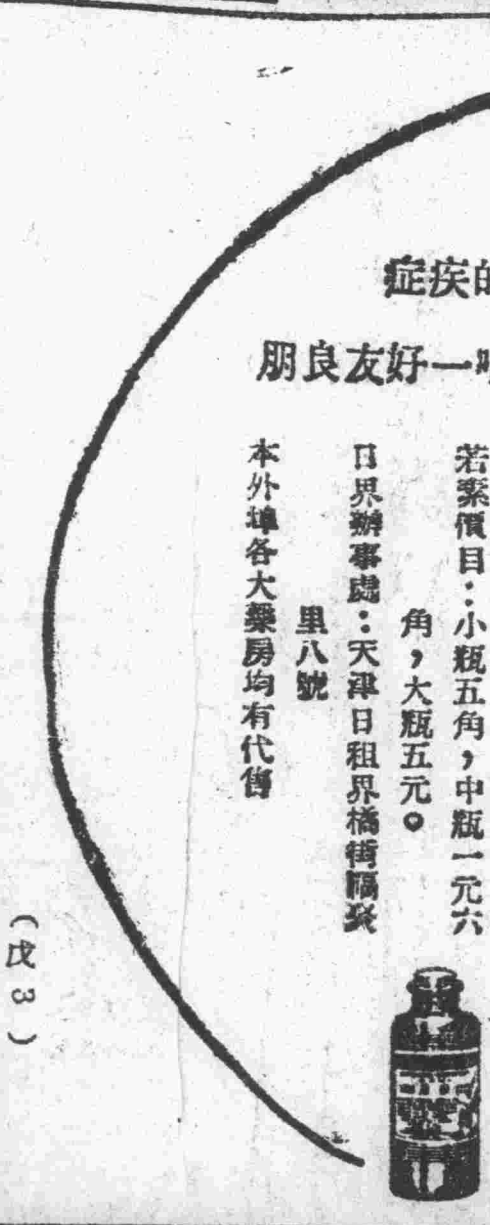 的疾症
一好友良朋
若素價目：小瓶五角，中瓶一元六
角，大瓶五元。
日界辦事處：天津日租界橘街福聚
里八號
本外埠各大藥房均有代售
（戊3）